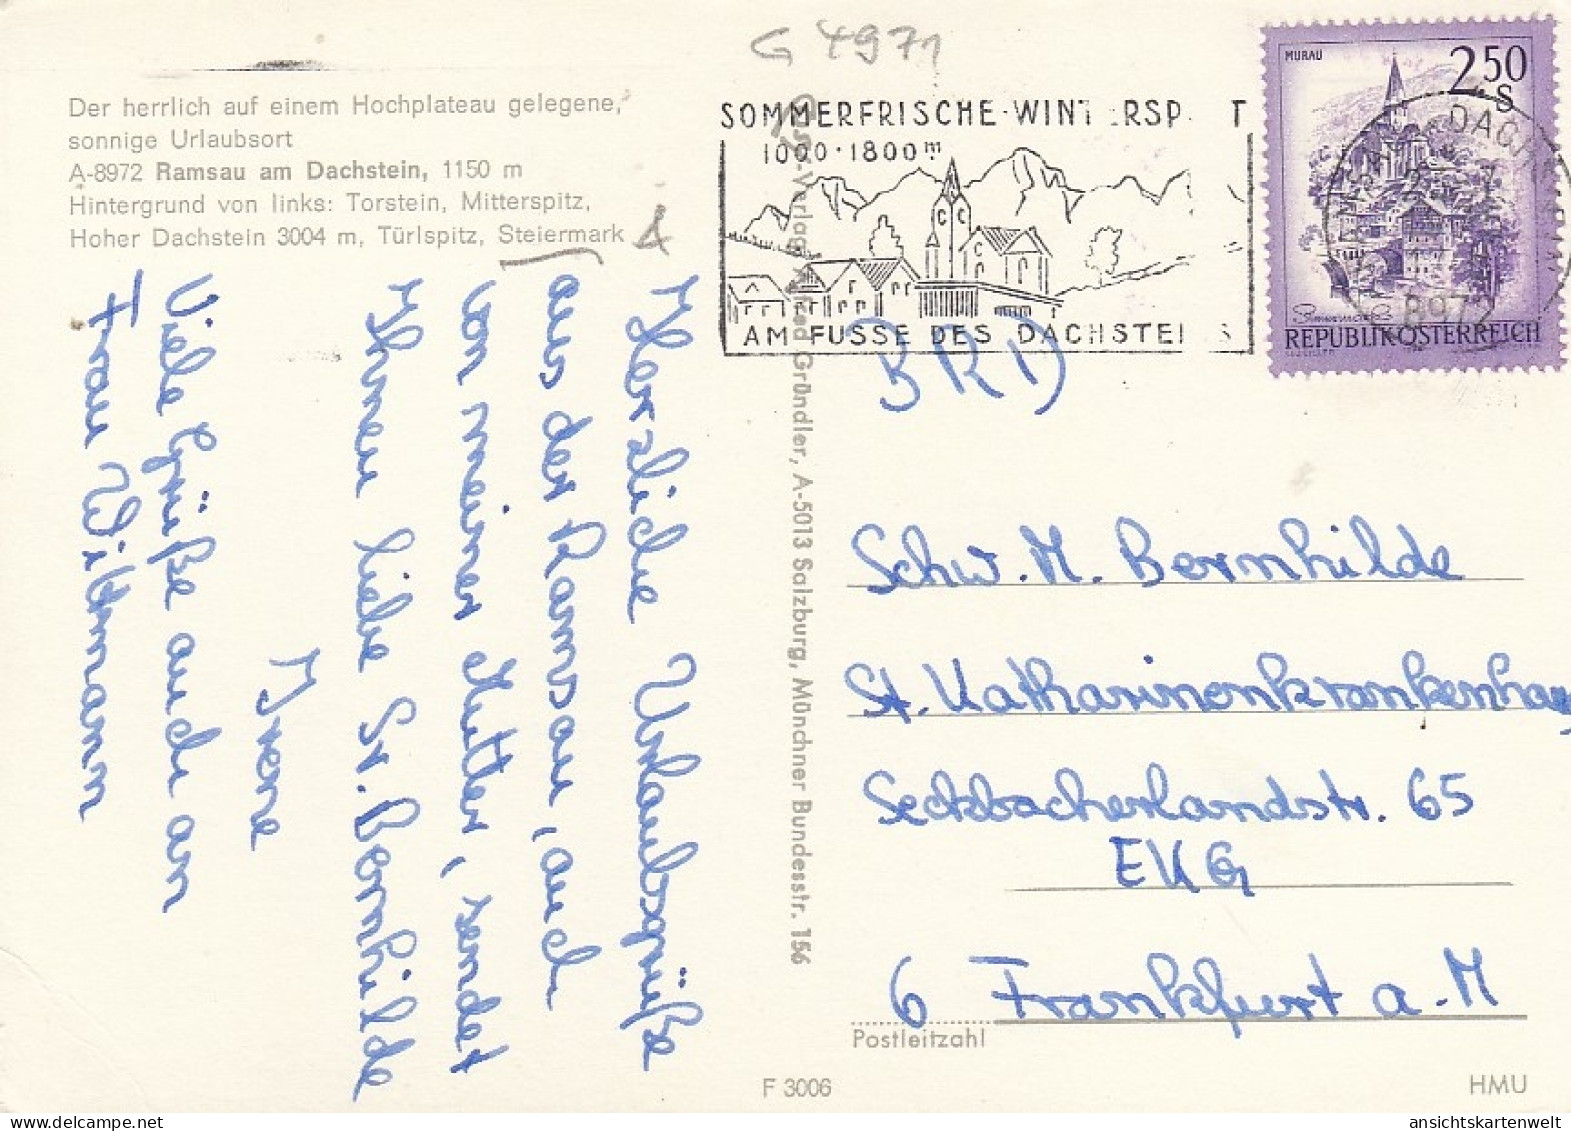 G 4971
Der herrlich auf einem Hochplateau gelegene,
sonnige Urlaubsort
A-8972 Ramsau am Dachstein, 1150 m
Hintergrund von links: Torstein, Mitterspitz,
Hoher Dachstein 3004 m, Türlspitz, Steiermark
SOMMERFRISCHE·WINT ERSP T
1000·1800m
AM FUSSE DES DACHSTEI S
MURAU
2.50
S
REPUBLIK ÖSTERREICH
DACH
8972
Herzliche Urlaubsgrüße
aus der Ramsau, auch
von meiner Mutter, sendet
Ihnen liebe Sr. Bernhilde
Irene
Viele Grüße auch an
Frau Widmann
-Verlag Alfred Gründler, A-5013 Salzburg, Münchner Bundesstr. 156
BRD
Schw. M. Bernhilde
St. Katharinenkrankenhaus
Seckbacherlandstr. 65
EKG
6 Frankfurt a.M
Postleitzahl
F 3006
HMU
ansichtskartenwelt